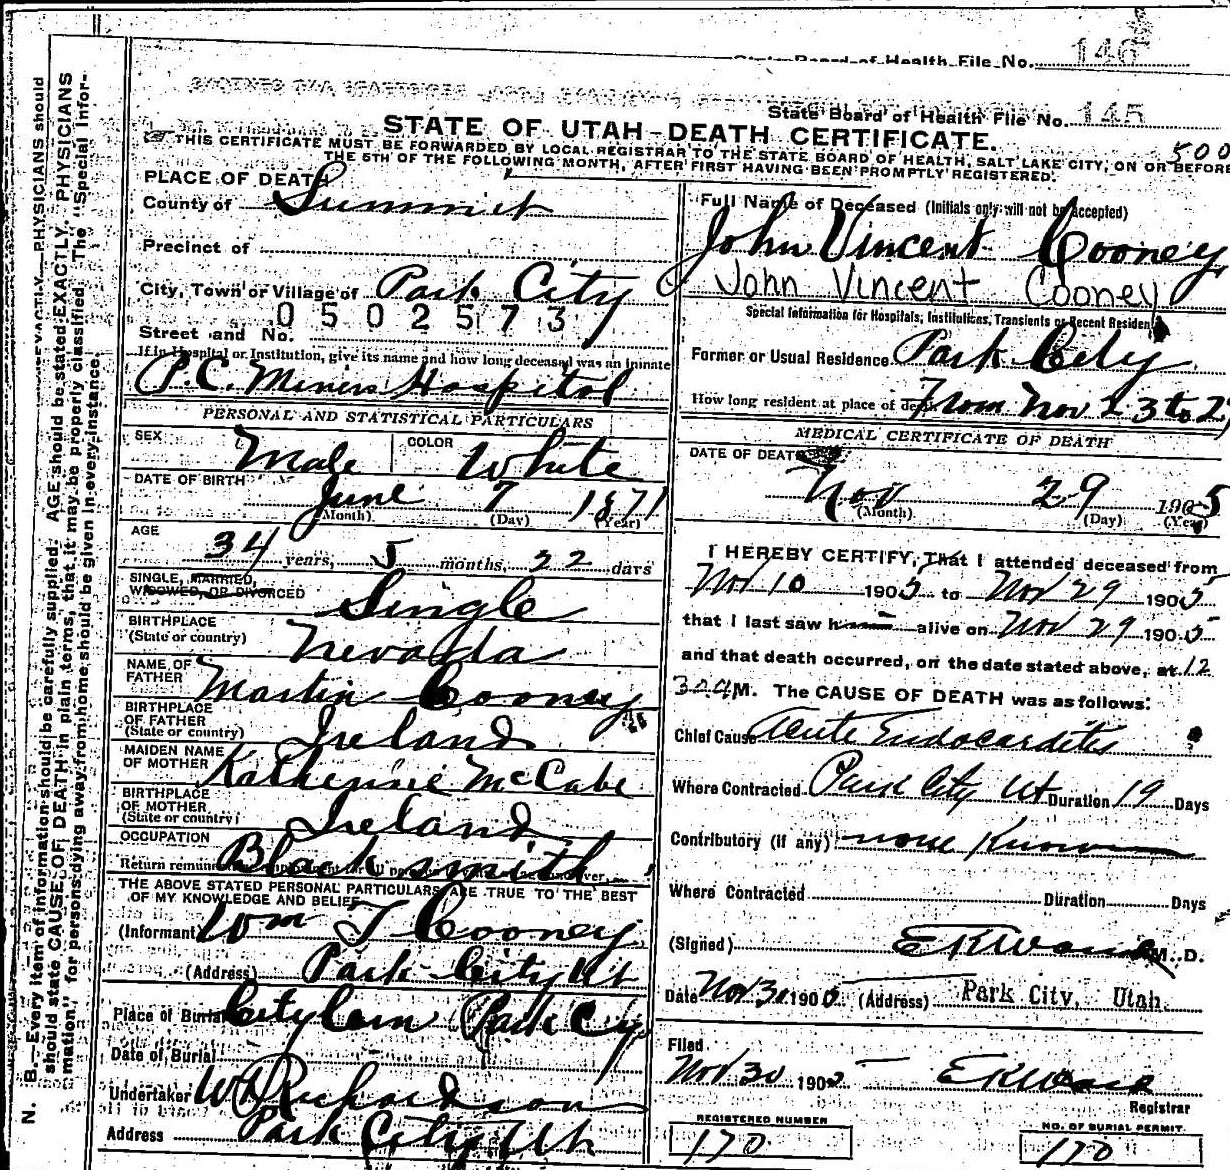 State Board of Health File No. 146
State Board of Health File No. 145
STATE OF UTAH-DEATH CERTIFICATE.
500
THIS CERTIFICATE MUST BE FORWARDED BY LOCAL REGISTRAR TO THE STATE BOARD OF HEALTH, SALT LAKE CITY, ON OR BEFORE
THE 5TH OF THE FOLLOWING MONTH, AFTER FIRST HAVING BEEN PROMPTLY REGISTERED.
PLACE OF DEATH
County of Summit
Precinct of
City, Town or Village of Park City
0502573
Street and No.
If in Hospital or Institution, give its name and how long deceased was an inmate
P.C. Miners Hospital
PERSONAL AND STATISTICAL PARTICULARS
SEX Male COLOR White
DATE OF BIRTH June 7 1871
(Month) (Day) (Year)
AGE
34 years, 5 months, 22 days
SINGLE, MARRIED,
WIDOWED, OR DIVORCED Single
BIRTHPLACE
(State or country) Nevada
NAME OF
FATHER Martin Cooney
BIRTHPLACE
OF FATHER
(State or country) Ireland
MAIDEN NAME
OF MOTHER Katherine McCabe
BIRTHPLACE
OF MOTHER
(State or country) Ireland
OCCUPATION Blacksmith
THE ABOVE STATED PERSONAL PARTICULARS ARE TRUE TO THE BEST
OF MY KNOWLEDGE AND BELIEF
(Informant) Wm T Cooney
(Address) Park City Ut
Place of Burial City Cem Park Cy
Date of Burial
Undertaker W Richardson
Address Park City Ut
Full Name of Deceased (Initials only will not be accepted)
John Vincent Cooney
John Vincent Cooney
Special Information for Hospitals, Institutions, Transients or Recent Residents
Former or Usual Residence Park City
How long resident at place of death From Nov 23 to 29
MEDICAL CERTIFICATE OF DEATH
DATE OF DEATH
Nov 29 1905
(Month) (Day) (Year)
I HEREBY CERTIFY, That I attended deceased from
Nov 10 1905 to Nov 29 1905
that I last saw h alive on Nov 29 1905
and that death occurred, on the date stated above, at 12
M. The CAUSE OF DEATH was as follows:
Chief Cause Acute Endocarditis
Where Contracted Park City Ut Duration 19 Days
Contributory (if any) none Known
Where Contracted Duration Days
(Signed) M. D.
Date Nov 30 1905 (Address) Park City, Utah.
Filed
Nov 30 190
Registrar
REGISTERED NUMBER
170
NO. OF BURIAL PERMIT.
170
N. B.—Every item of information should be carefully supplied. AGE should be stated EXACTLY. PHYSICIANS
should state CAUSE OF DEATH in plain terms, that it may be properly classified. The "Special Infor-
mation" for persons dying away from home should be given in every instance.